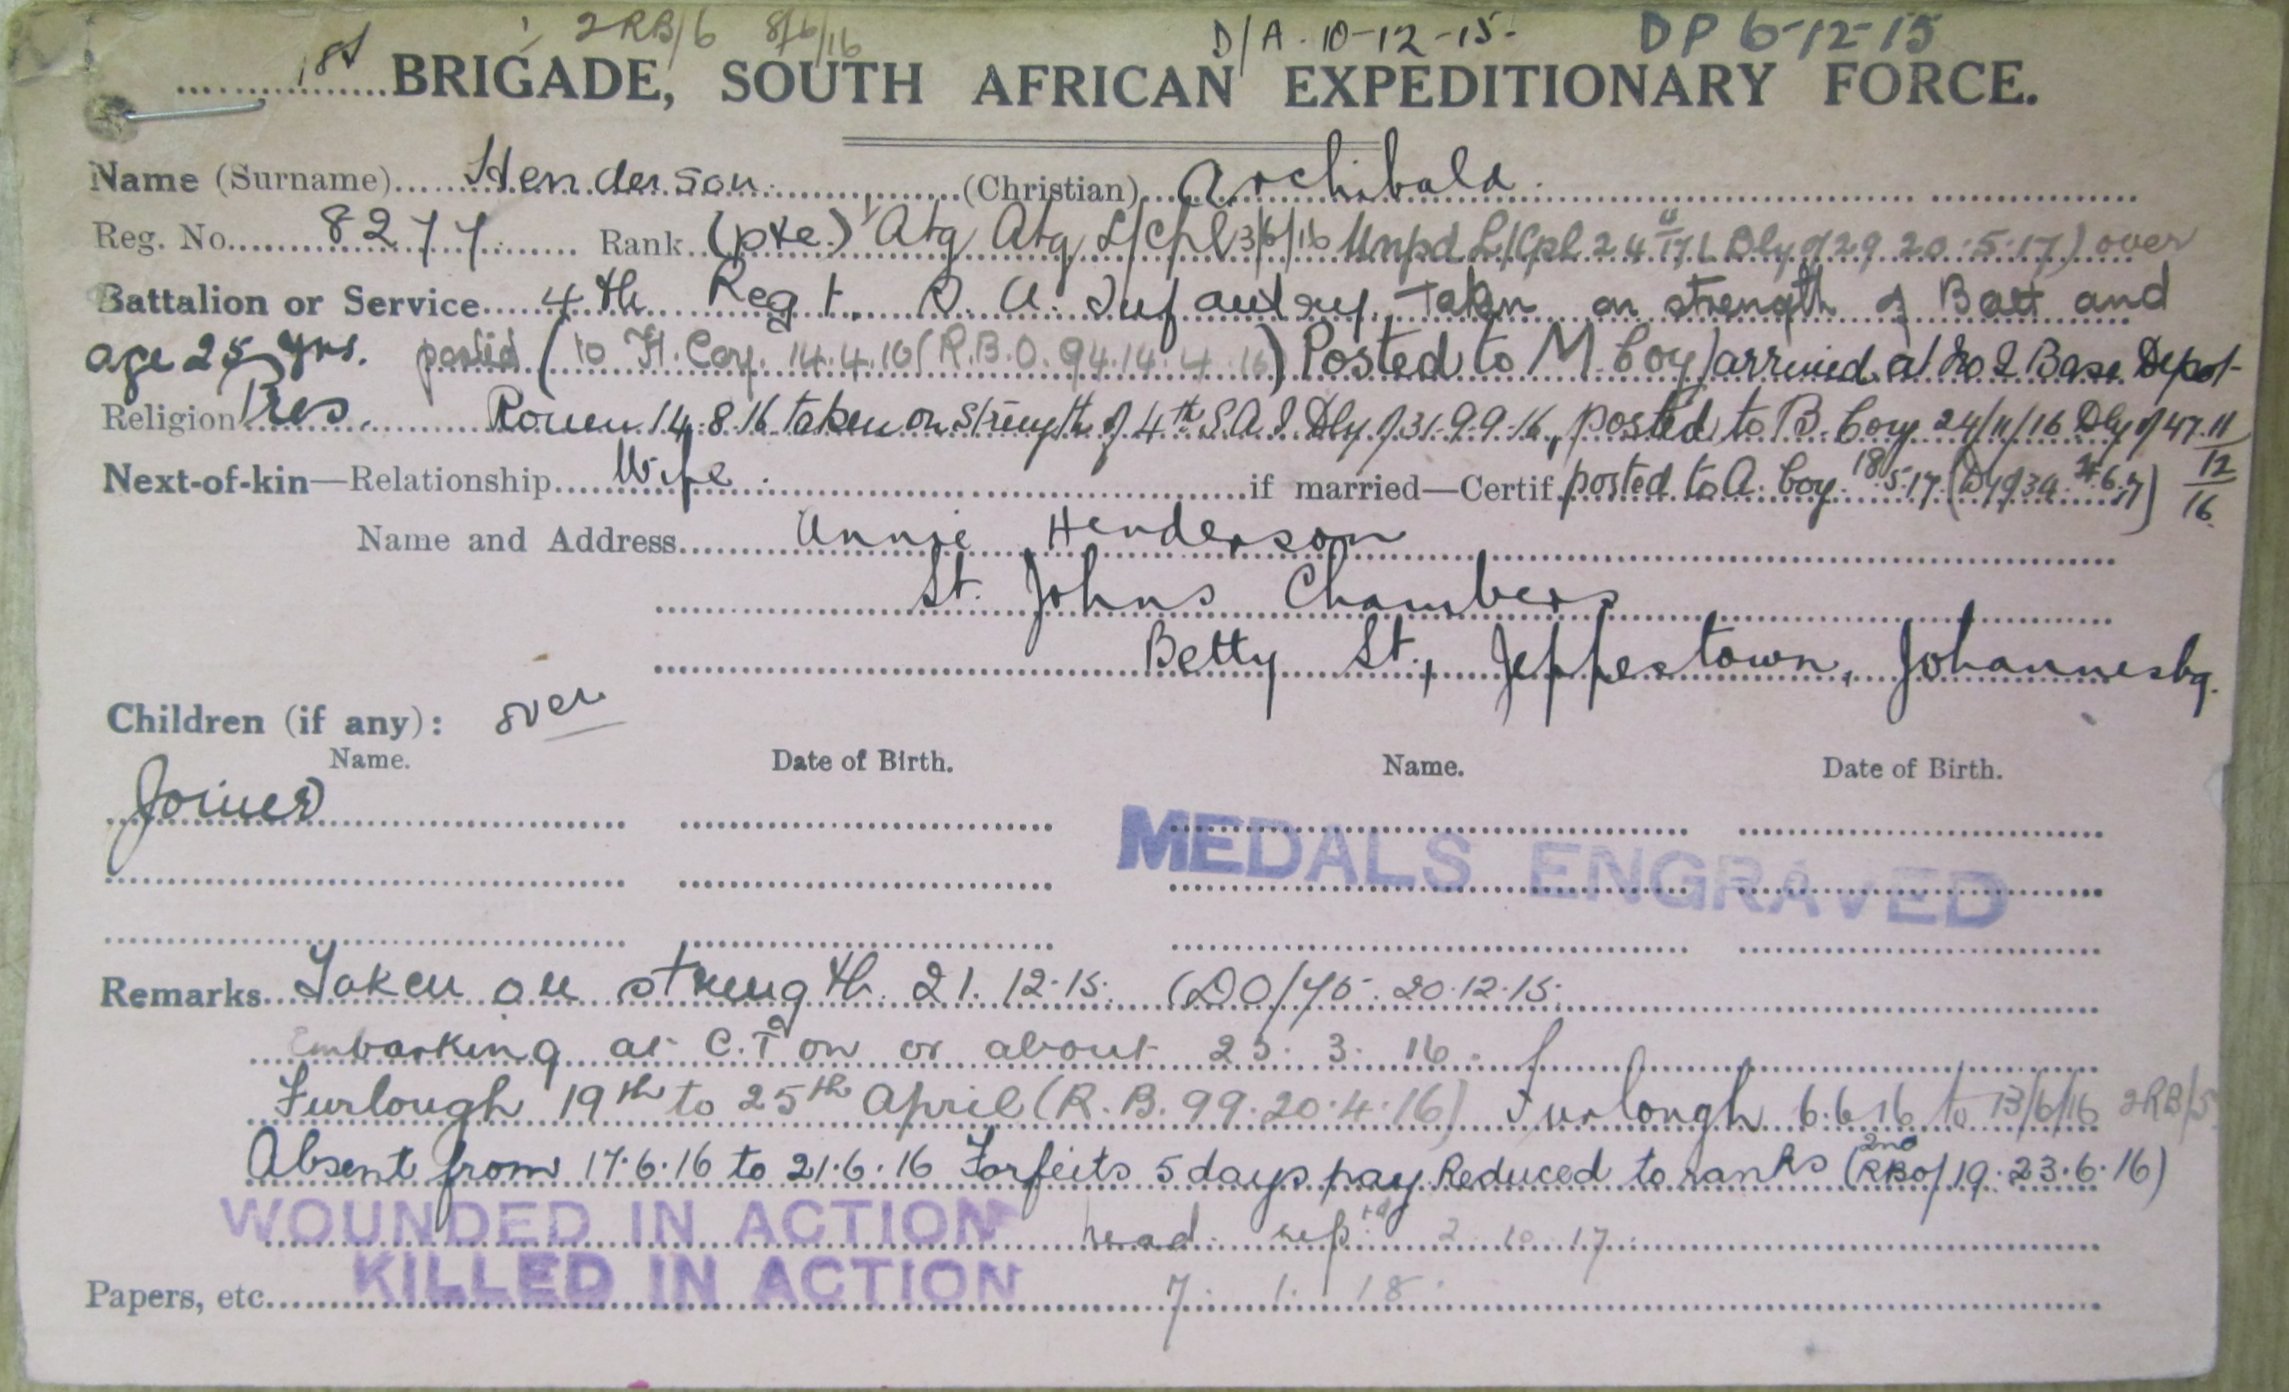 2RB/6 8/6/16 D/A. 10-12-15. DP 6-12-15
1st BRIGADE, SOUTH AFRICAN EXPEDITIONARY FORCE.
Name (Surname) Henderson (Christian) Archibald
Reg. No. 8277 Rank (pte.) Atg Atg L/Cpl 3/6/16 Unpd L/Cpl 24 Dly 29 20.5.17) over
Battalion or Service 4th Regt. S. A. Infantry. Taken on strength of Batt and
age 25 yrs. posted (to H. Coy. 14.4.16 (R.B.O. 94.14.4.16) Posted to M Coy) arrived at No 2 Base Depot
Religion Pres. Rouen 14.8.16 taken on strength of 4th S.A.I Dly 31.9.9.16, posted to B. Coy 24/11/16 Dly 47.11
Next-of-kin—Relationship Wife. if married—Certif. posted to A Coy. 18.5.17 (Dly 34 4.6.17) 12
16
Name and Address Annie Henderson
St. Johns Chambers
Betty St., Jeppestown, Johannesbg.
Children (if any): over
Name. Date of Birth. Name. Date of Birth.
Joiner
MEDALS ENGRAVED
Remarks Taken on strength. 21.12.15. (DO/75. 20.12.15.
Embarking at C.T on or about 23.3.16.
Furlough 19th to 25th April (R.B. 99.20.4.16) Furlough 6.6.16 to 13/6/16 2RB/5
Absent from 17.6.16 to 21.6.16 Forfeits 5 days pay Reduced to ranks (2nd RBO/19.23.6.16)
WOUNDED IN ACTION head rep:td 2 10 17.
KILLED IN ACTION
Papers, etc. 7. 1. 18.